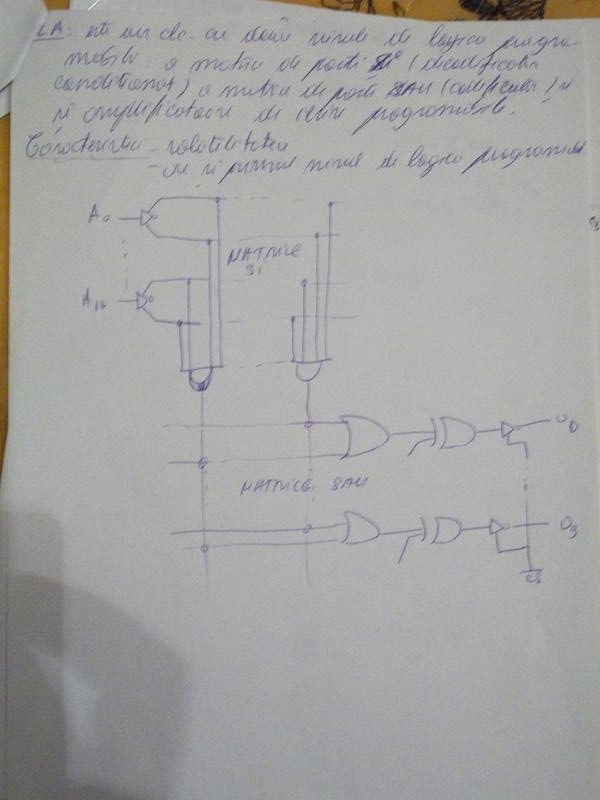 LA: este un dc. cu două nivele de logica progra-
mabile: o matrice de porti SI (decodificator
conditionat) o matrice de porti SAU (codificator) si
si amplificatoare de iesire programabile.
Caracteristici - volatilitatea
- si primul nivel de logica programabil
A0
MATRICE
SI
MATRICE SAU
CS